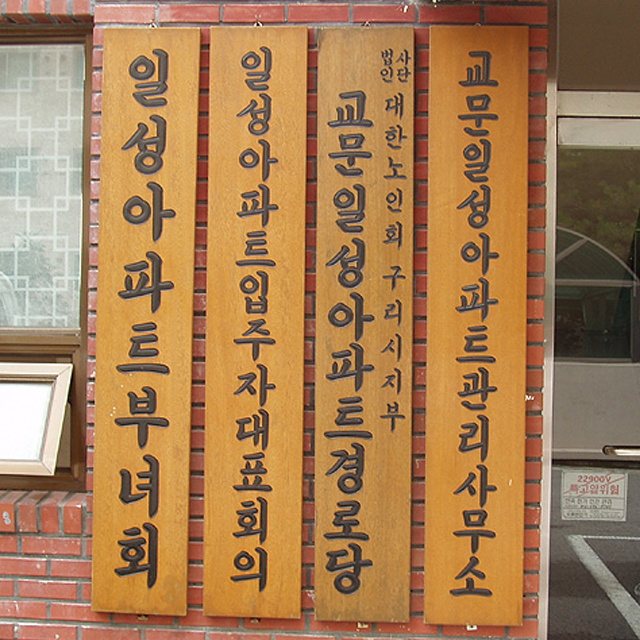 일성아파트부녀회
일성아파트입주자대표회의
사단
법인
대한노인회구리시지부
교문일성아파트경로당
교문일성아파트관리사무소
22900V
특고압위험